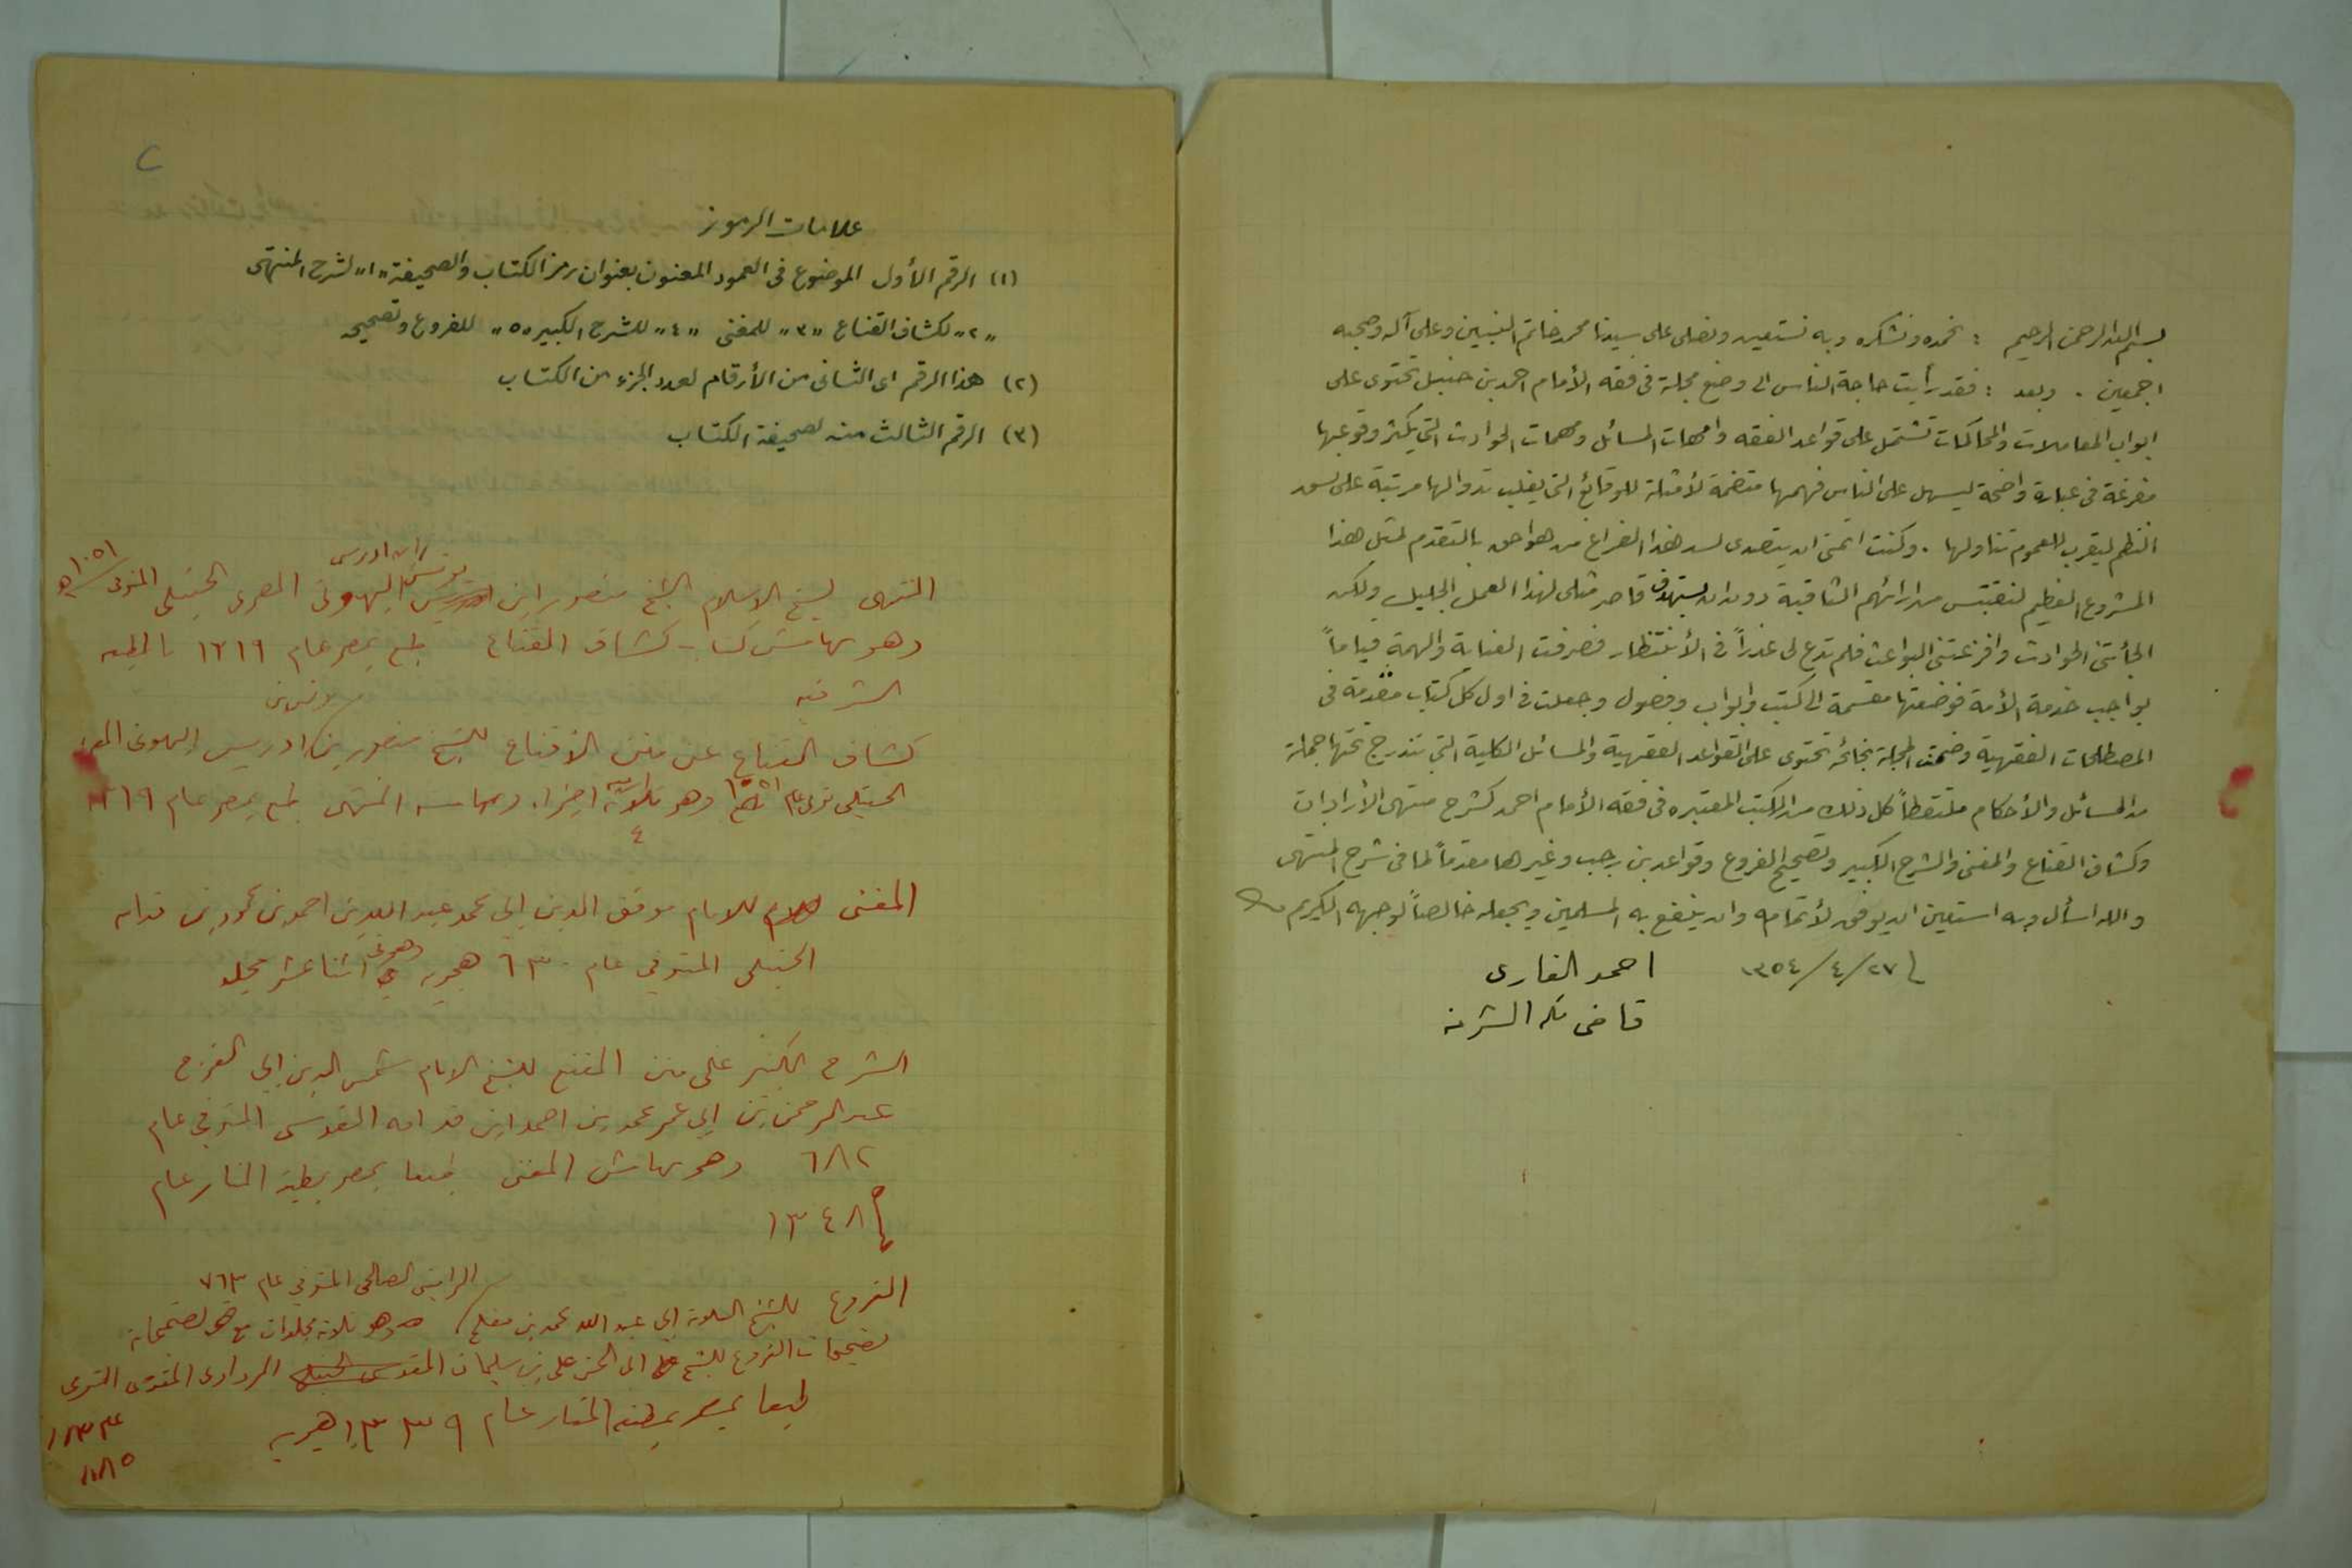 بسم الله الرحمن الرحيم : نحمده ونشكره وبه نستعين ونصلى على سيدنا محمد خاتم النبيين وعلى آله وصحبه
اجمعين . وبعد : فقد رأيت حاجة الناس الى وضع مجلة فى فقه الأمام احمد بن حنبل تحتوى على
ابواب المعاملات والمحاكمات تشتمل على قواعد الفقه وامهات المسائل ومهمات الحوادث التى يكثر وقوعها
مفرغة فى عبارة واضحة ليسهل على الناس فهمها متضمة لأمثلة للوقائع التى يغلب تداولها مرتبة على نسق
النظم ليقرب للعموم تناولها . وكنت اتمنى ان يتصدى لسد هذا الفراغ من هو احق بالتقدم لمثل هذا
المشروع العظيم لنقتبس من ارائهم الثاقبة دون ان يستهدف قاصر مثلى لهذا العمل الجليل ولكن
الجأتنى الحوادث وافزعتنى البواعث فلم تدع لى عذراً فى الأنتظار فصرفت العناية والهمة قياماً
بواجب خدمة الأمة فوضعتها مقسمة الى كتب وابواب وفصول وجعلت فى اول كل كتاب مقدمة فى
المصطلحات الفقهية وضمت المجلة بخاتمة تحتوى على القواعد الفقهية والمسائل الكلية التى تندرج تحتها جملة
من المسائل والأحكام ملتقطاً كل ذلك من الكتب المعتبره فى فقه الأمام احمد كشرح منتهى الأرادات
وكشاف القناع والمغنى والشرح الكبير وتصحيح الفروع وقواعد بن رجب وغيرها مقدماً لما فى شرح المنتهى
والله اسأل وبه استعين ان يوفق لأتمامه وان ينفع به المسلمين ويجعله خالصاً لوجهه الكريم
٢٧/٤/١٣٥٤ احمد القارى
قاضى مكه
علامات الرموز
(١) الرقم الأول الموضوع فى العمود المعنون بعنوان رمز الكتاب والصحيفة "١" لشرح المنتهى
"٢" لكشاف القناع "٣" للمغنى "٤" للشرح الكبير "٥" للفروع وتصحيحه
(٢) هذا الرقم اى الثانى من الأرقام لعدد الجزء من الكتاب
(٣) الرقم الثالث منه لصحيفة الكتاب
ابن ادريس
المنتهى لشيخ الاسلام الشيخ منصور ابن يونس البهوتى المصرى الحنبلى المتوفى ١٠٥١ هـ
وهو بهامش كتاب كشاف القناع طبع بمصر عام ١٣١٩ بالمطبعه
الشرفيه
كشاف القناع عن متن الاقناع للشيخ منصور بن ادريس البهوتى
الحنبلى توفى عام ١٠٥١ وهو اجزاء وبهامشه المنتهى طبع بمصر عام ١٣١٩
٤
المغنى للامام موفق الدين ابى محمد عبد الله بن احمد بن محمود بن قدامه
الحنبلى المتوفى عام ٦٣٠ هجريه وهو فى اثنا عشر مجلد
الشرح الكبير على متن المقنع للشيخ الامام شمس الدين ابى الفرج
عبد الرحمن بن ابى عمر محمد بن احمد ابن قدامه المقدسى المتوفى عام
٦٨٢ وهو بهامش المغنى طبعا بمصر بمطبعة المنار عام
١٣٤٨
الراينى الصالحى المتوفى عام ٧٦٣
الفروع للشيخ العلامة ابى عبد الله محمد بن مفلح وهو ثلاثة مجلدات مع
تصحيحات الفروع للشيخ ابى الحسن على بن سليمان المقدسى الحنبلى المرداوى المتوفى
عام
٨٨٥
طبعا بمصر بمطبعة المنار عام ١٣٣٩ هجريه